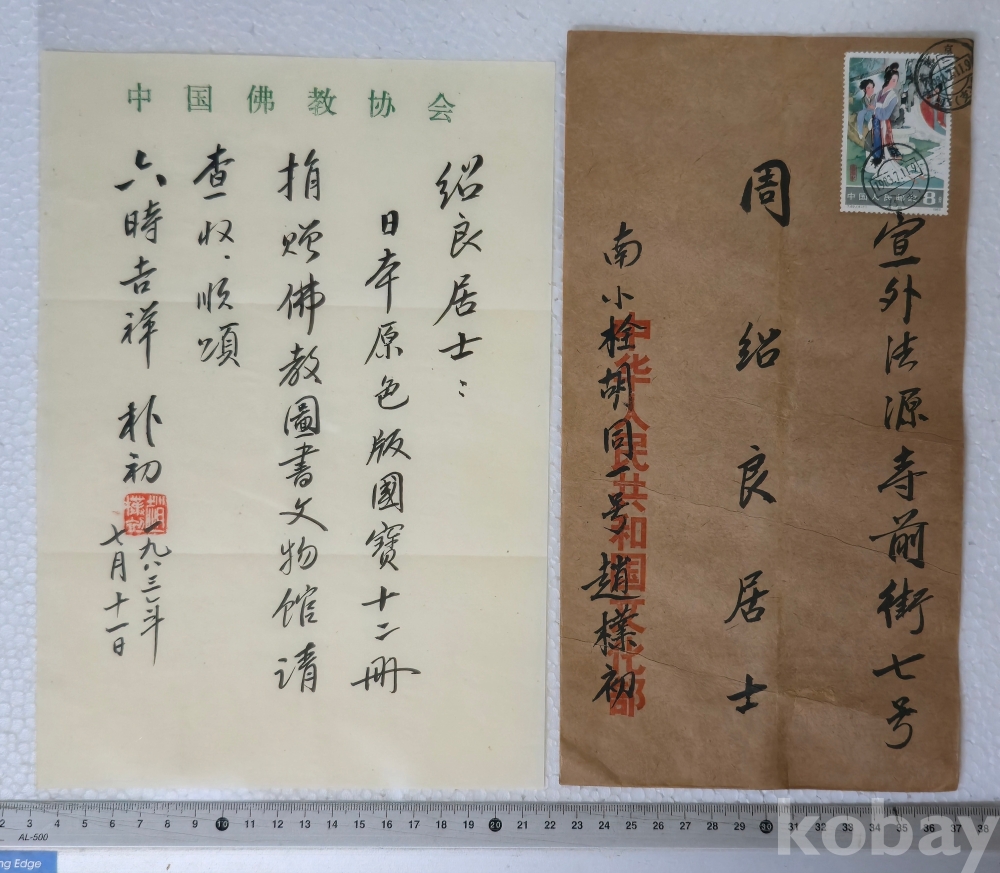 中国佛教协会
绍良居士：
日本原色版國寶十二冊
捐赠佛教圖書文物馆请
查收、顺颂
六時吉祥 朴初
一九八三年
七月十一日
宣外法源寺前街七号
周绍良居士
南小栓胡同一号趙樸初
中华人民共和国文化部
中国人民邮政
8
1983.7.11
2 3 4 5 6 7 8 9 10 11 12 13 14 15 16 17 18 19 20 21 22 23 24 25 26 27 28 29 30 31 32 33 34 35 36 37 38
AL-500
ng Edge
kobay